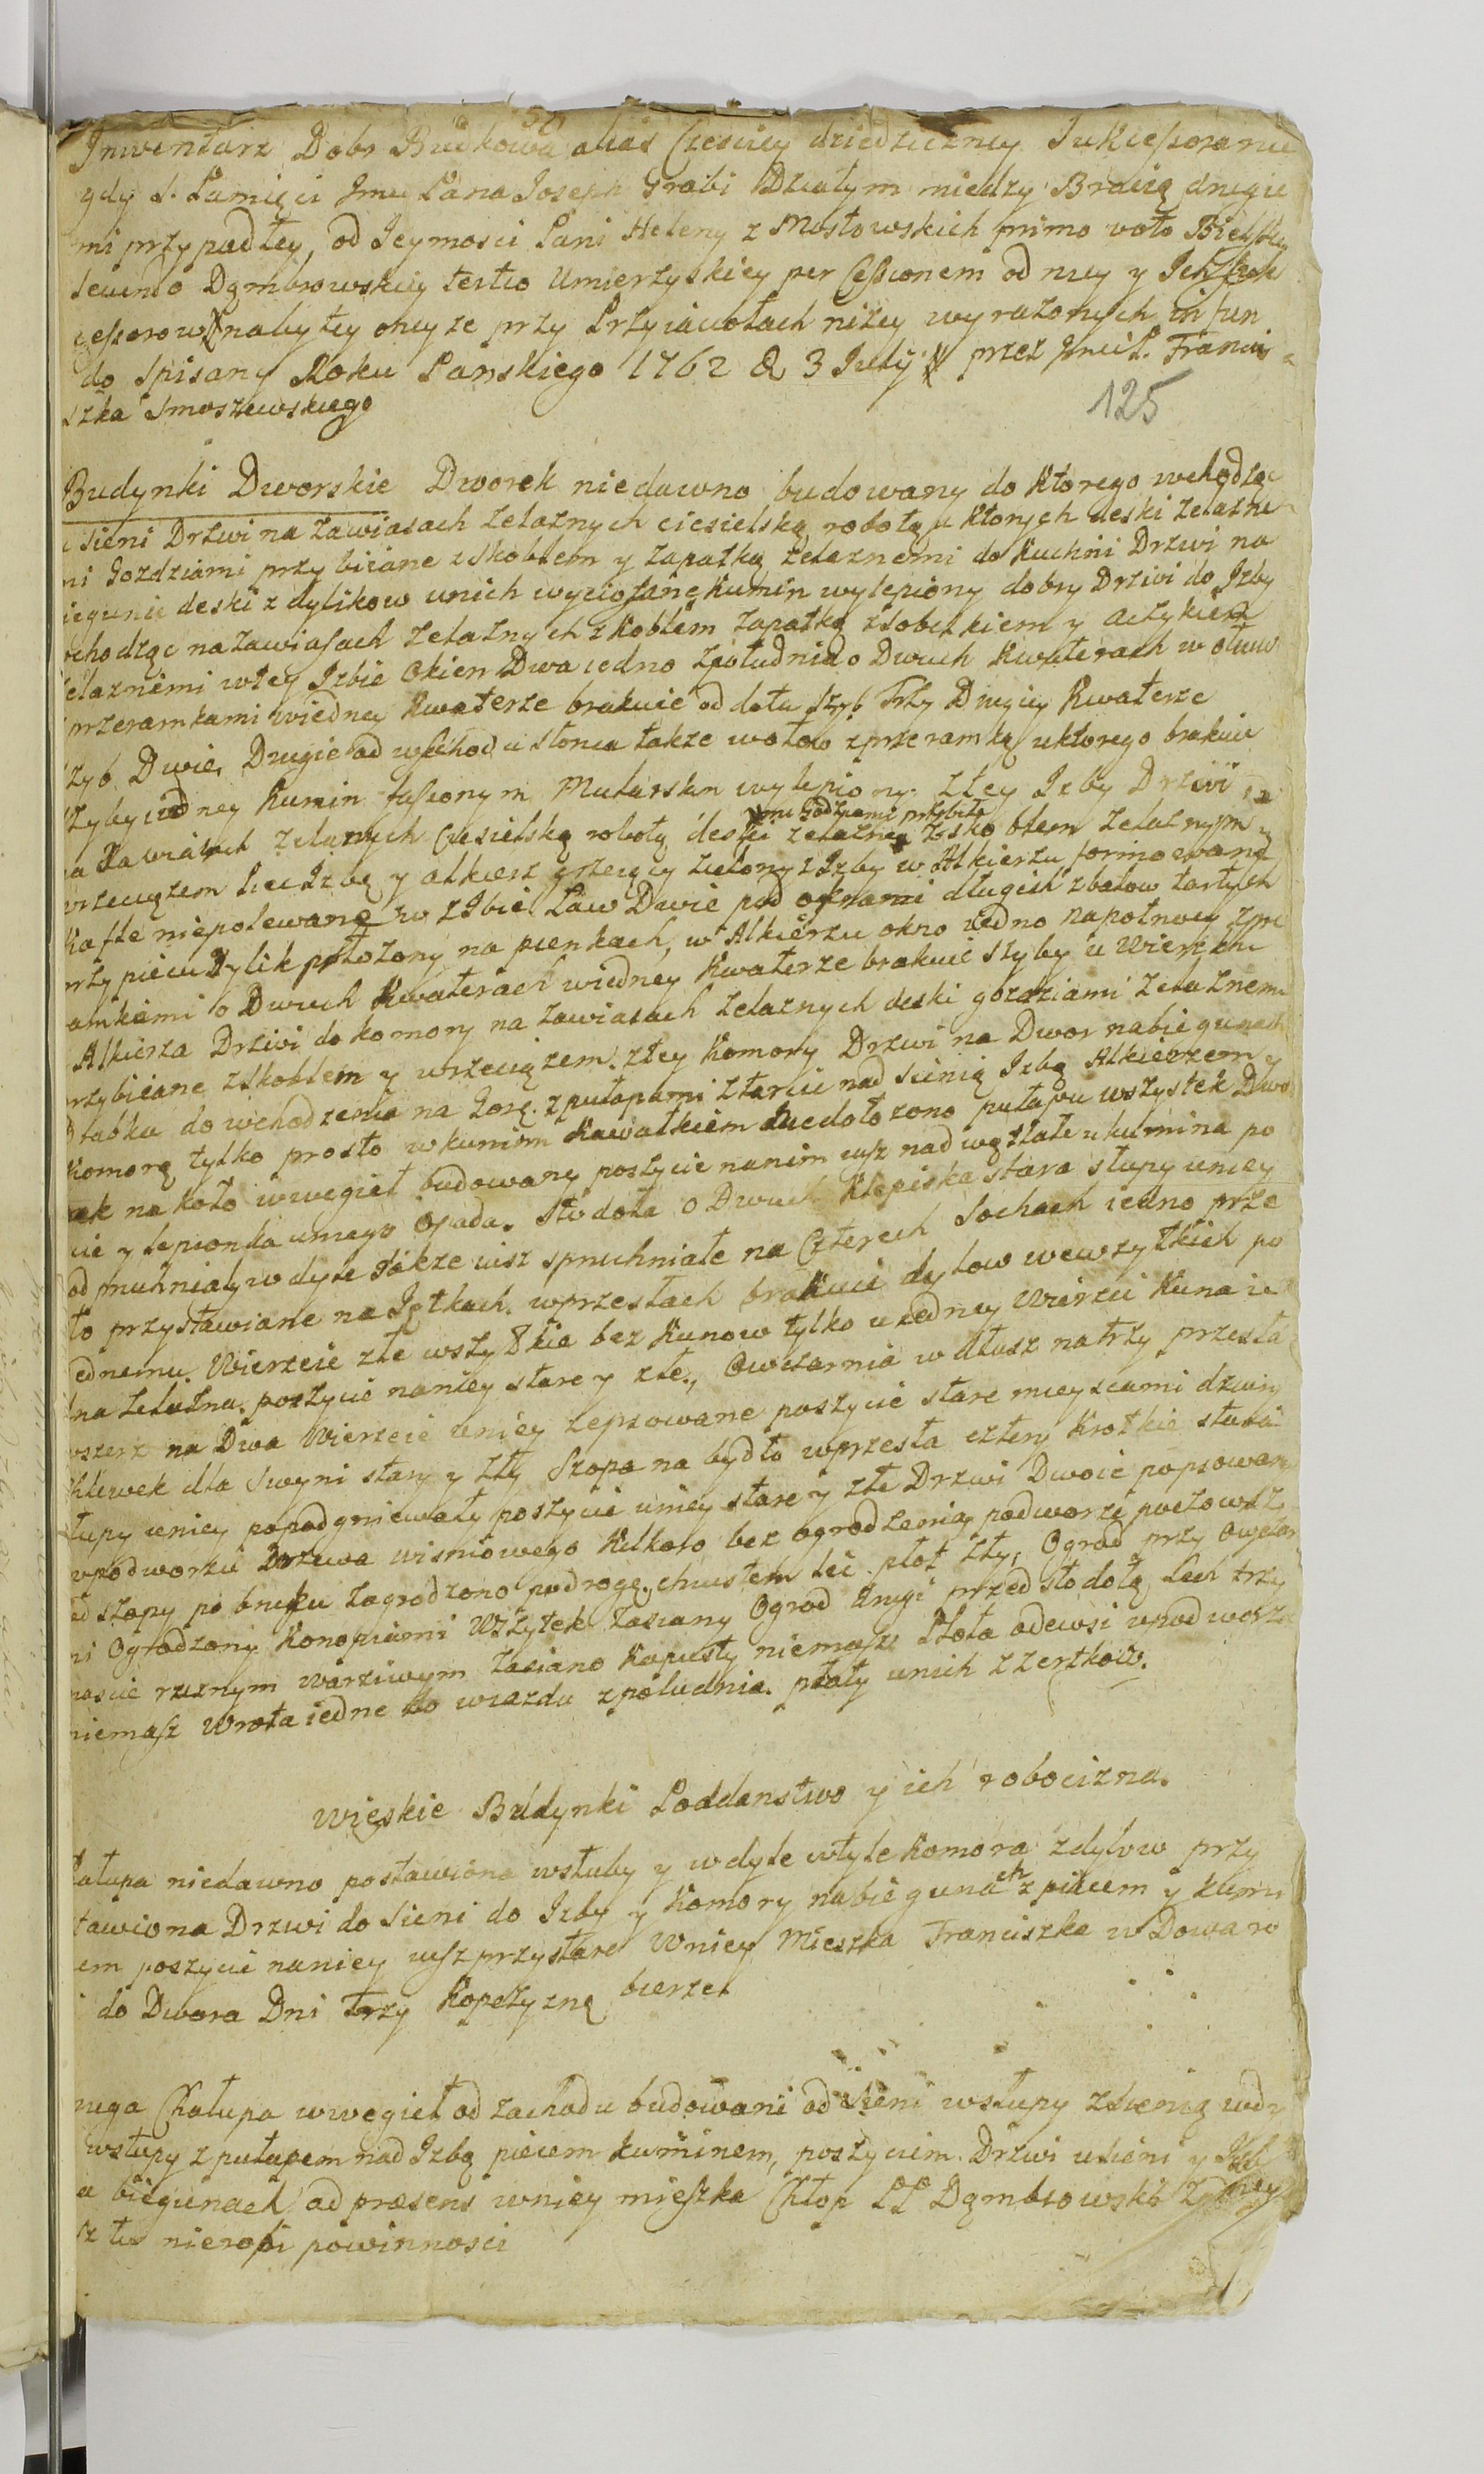 Inwentarz Dobr Budkowa alias Częsciey dziedziczney Sukcessorom nie
gdy S. Pamięci Jmci Pana Joseph Grabi Działym miedzy Bracią drugie
mi przypadłey, od Jeymosci Pani Heleny z Mostowskich primo voto Bielskiey
secundo Dąmbrowskiey tertio Umierzyskiey per Cessionem od niey y Ich Suk
cessorow nabytey oneyze przy Przyiaciołach nizey wyrazonych in fun
do spisany Roku Panskiego 1762 D 3 July przez Jmci P. Franci
szka Smoszewskiego
125
Budynki Dworskie Dworek niedawno budowany do Ktorego wchodząc
sieni Drzwi na zawiasach zelaznych ciesielską robotą u Ktorych deski zelazne
mi Gozdziami przybiiane z skoblem y zapałką zelaznemi do Kuchni Drzwi na
biegunie deski z dylikow unich wyciosane Kumin wylepiony dobry Drzwi do Izby
wchodząc na zawiasach zelaznych z Koblem zapałką z
zelaznemi w tey Izbie Okien Dwa iedno z południa o Dwuch Kwaterach w ołuw
z przeramkami w iedney Kwaterze brakuie od dołu szyb Trzy Drugiey Kwaterze
szyb Dwie, Drugie od wschodu słonca takze w ołow z przeramką u ktorego brakuie
szyby iedney Kumin fassonym Mularskim wylepiony. z tey Izby Drzwi
na Zawiasach zelaznych Ciesielską robotą deski zelaznemi Godziami przybite z skoblem zelaznym y
wrzeciązem Piec Izbę y alkierz grzeiący zielony z Izby w Alkierzu formowane
Kafle niepolewane w Izbie Ław Dwie pod oknami długich z balow tartych
przy piecu Dylik położony na pienkach, w Alkierzu okno iedno na połnocy z prze
ramkami o Dwuch Kwaterach w iedney Kwaterze brakuie szyby u Wierzchu
z Alkierza Drzwi do komory na zawiasach zelaznych deski gozdziami zelaznemi
przybiiane z skoblem y wrzeciązem. z tey Komory Drzwi na Dwor na biegunach
Drabka do wchodzenia na Gorę. z pułapami z tarcic nad sienią Izbą Alkierzem y
Komorą tylko prosto w kumin Kawałkiem niedołozono pułapu wszystek Dwo
rek na koło w węgieł budowany poszycie nanim iusz nadwątlałe u kumina po
cie y lepionka u niego opada. Stodoła o Dwuch Klepiska stara słupy uniey
od pruhniały w dyle takze iusz spruhniałe na Czterech Sochach iedno prze
sło przystawiane na Iętkach. w przesłach brakuie dylow we wszytkich po
iednemu. Wierzeie złe wszytkie bez Kunow tylko u iedney Wierzei Kuna ie
dna zelazna. poszycie naniey stare y złe, Owczarnia w dłusz na trzy przesła
w szerz na Dwa Wierzeie u niey zepsowane poszycie stare mieyscami dziury
Chlewek dla swyni stary y zły Szopa na bydło w przesła cztery Krotkie stara
słupy uniey popodgniewały poszycie uniey stare y złe Drzwi Dwoie popsowane
w podworzu Drzewa wisniowego Kilkoro bez ogrodzenia podworze począwszy
od szopy po bruzdę zagrodzono pod rogę. chrustem lec płot zły, Ogrod przy Owczar
ni Ogrodzony Konopiami Wszytek zasiany Ogrod drugi przed stodołą, Lech trzy
nascie roznym warziwym zasiano Kapusty niemasz Płota ode wsi w podworze
niemasz Wrota iedne do wiazdu z południa. płoty unich z zerzkow.
Wieyskie Budynki Poddanstwo y ich robocizna.
Chałupa niedawno postawiona w słuby y w dyle w tyle Komora z dylow przy
stawiona Drzwi do Sieni do Izby y Komory na biegunach z piecem y kumi
nem poszycie naniey iusz przystare Wniey Mieszka Franciszka Wdowa ro
bi do Dwora Dni trzy Kopczyznę bierze.
Druga Chałupa w węgieł od zachodu budowani od sieni w słupy z sienią w dy
w słupy z pułapem nad Izbą piecem kuminem, poszyciem. Drzwi u sieni y Izby
na biegunach ad praesens wniey mieszka Chłop PP Dąmbrowski z
nierobi powinnosci